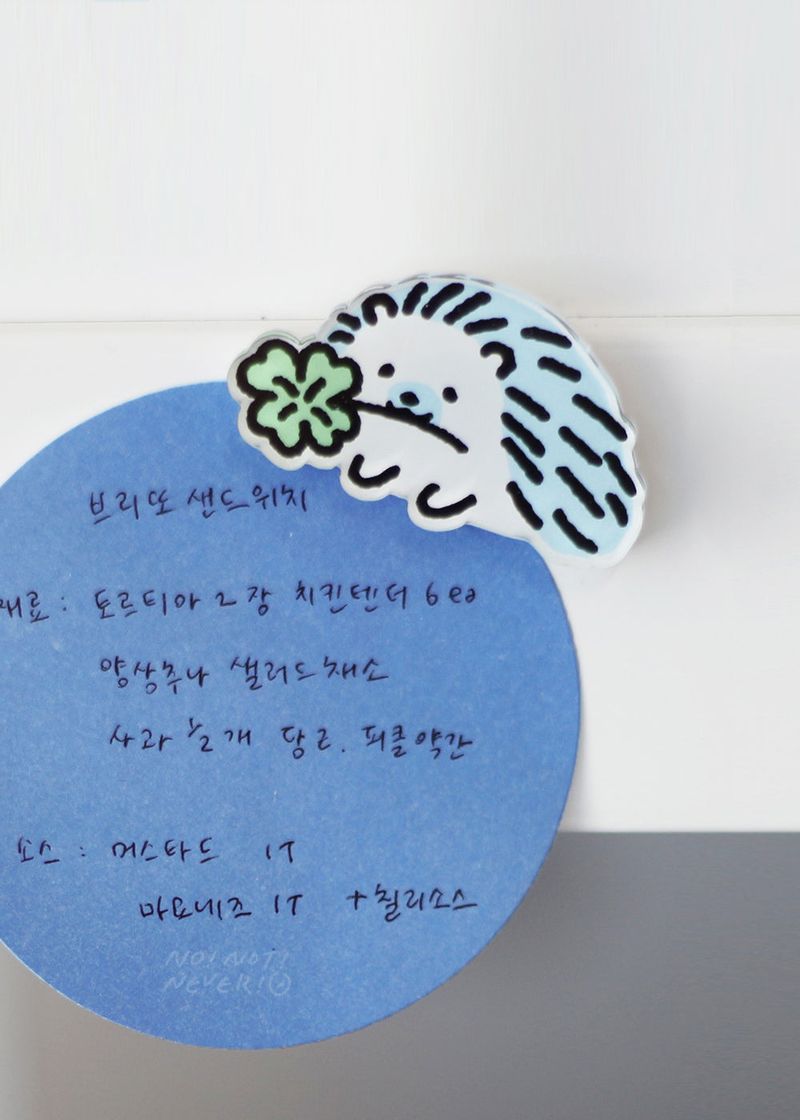 브리또 샌드위치
재료 : 또르티아 2장 치킨텐더 6ea
양상추나 샐러드채소
사과 ½개 당근. 피클약간
소스 : 머스타드 1T
마요네즈 1T +칠리소스
NO! NOT!
NEVER!